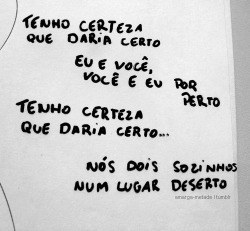 TENHO CERTEZA
QUE DARIA CERTO
EU E VOCÊ,
VOCÊ E EU POR
PERTO
TENHO CERTEZA
QUE DARIA CERTO...
NÓS DOIS SOZINHOS
NUM LUGAR DESERTO